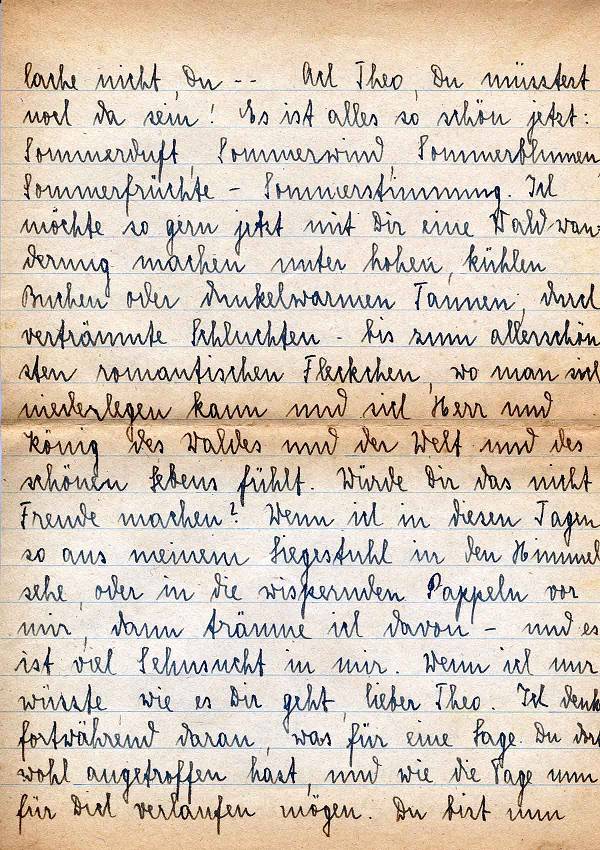 lache nicht, Du -- Ach Theo, Du müsstest
noch da sein! Es ist alles so schön jetzt:
Sommerduft, Sommerwind, Sommerblumen,
Sommerfrüchte - Sommerstimmung. Ich
möchte so gern jetzt mit Dir eine Wald-wan-
derung machen unter hohen, kühlen
Buchen oder dunkelwarmen Tannen, durch
verträumte Schluchten - bis zum allerschön-
sten romantischen Fleckchen, wo man sich
niederlegen kann und sich Herr und
König des Waldes und der Welt und des
schönen Lebens fühlt. Würde Dir das nicht
Freude machen? Wenn ich in diesen Tagen
so aus meinem Liegestuhl in den Himmel
sehe, oder in die wispernden Pappeln vor
mir, dann träume ich davon - und es
ist viel Sehnsucht in mir. Wenn ich nur
wüsste, wie es Dir geht, lieber Theo. Ich denke
fortwährend daran, was für eine Lage Du dort
wohl angetroffen hast, und wie die Tage nun
für Dich verlaufen mögen. Du bist nun